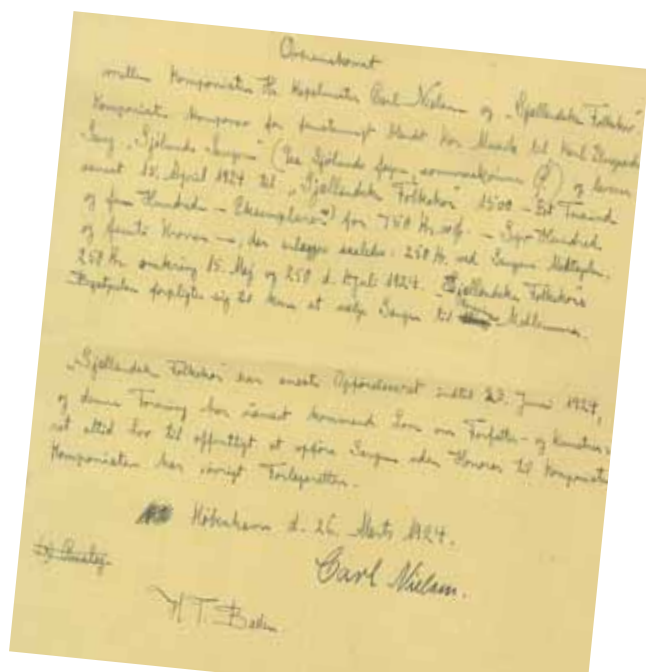 Overenskomst
mellem Komponisten Hr. Kapelmester Carl Nielsen og "Sjællandske Folkekor".
Komponisten komponerer for Kor Musik til
Sang "Sjølunds Sangen" ( Sjølunds fagre, ) og leverer
senest 15. April 1924 til "Sjællandske Folkekor" 1500 – Et Tusind
og fem Hundrede – Eksemplarer for 750 Kr. – Syv Hundrede
og femti Kroner –, der saaledes: 250 Kr. ved Sangens Modtagelse,
250 Kr. omkring 15. Maj og 250 d. 1924. Sjællandske Folkekors
Bestyrelse forpligter sig til kun at sælge Sangen til Medlemmer.
"Sjællandske Folkekor" har eneste Opførelsesret indtil 23. Juni 1924,
og denne Forening har kommende Lov om Forfatter- og
ret altid Lov til offentligt at opføre Sangen uden Honorar til Komponisten.
Komponisten har iøvrigt Forlagsretten.
København d. 26. Marts 1924.
Carl Nielsen.